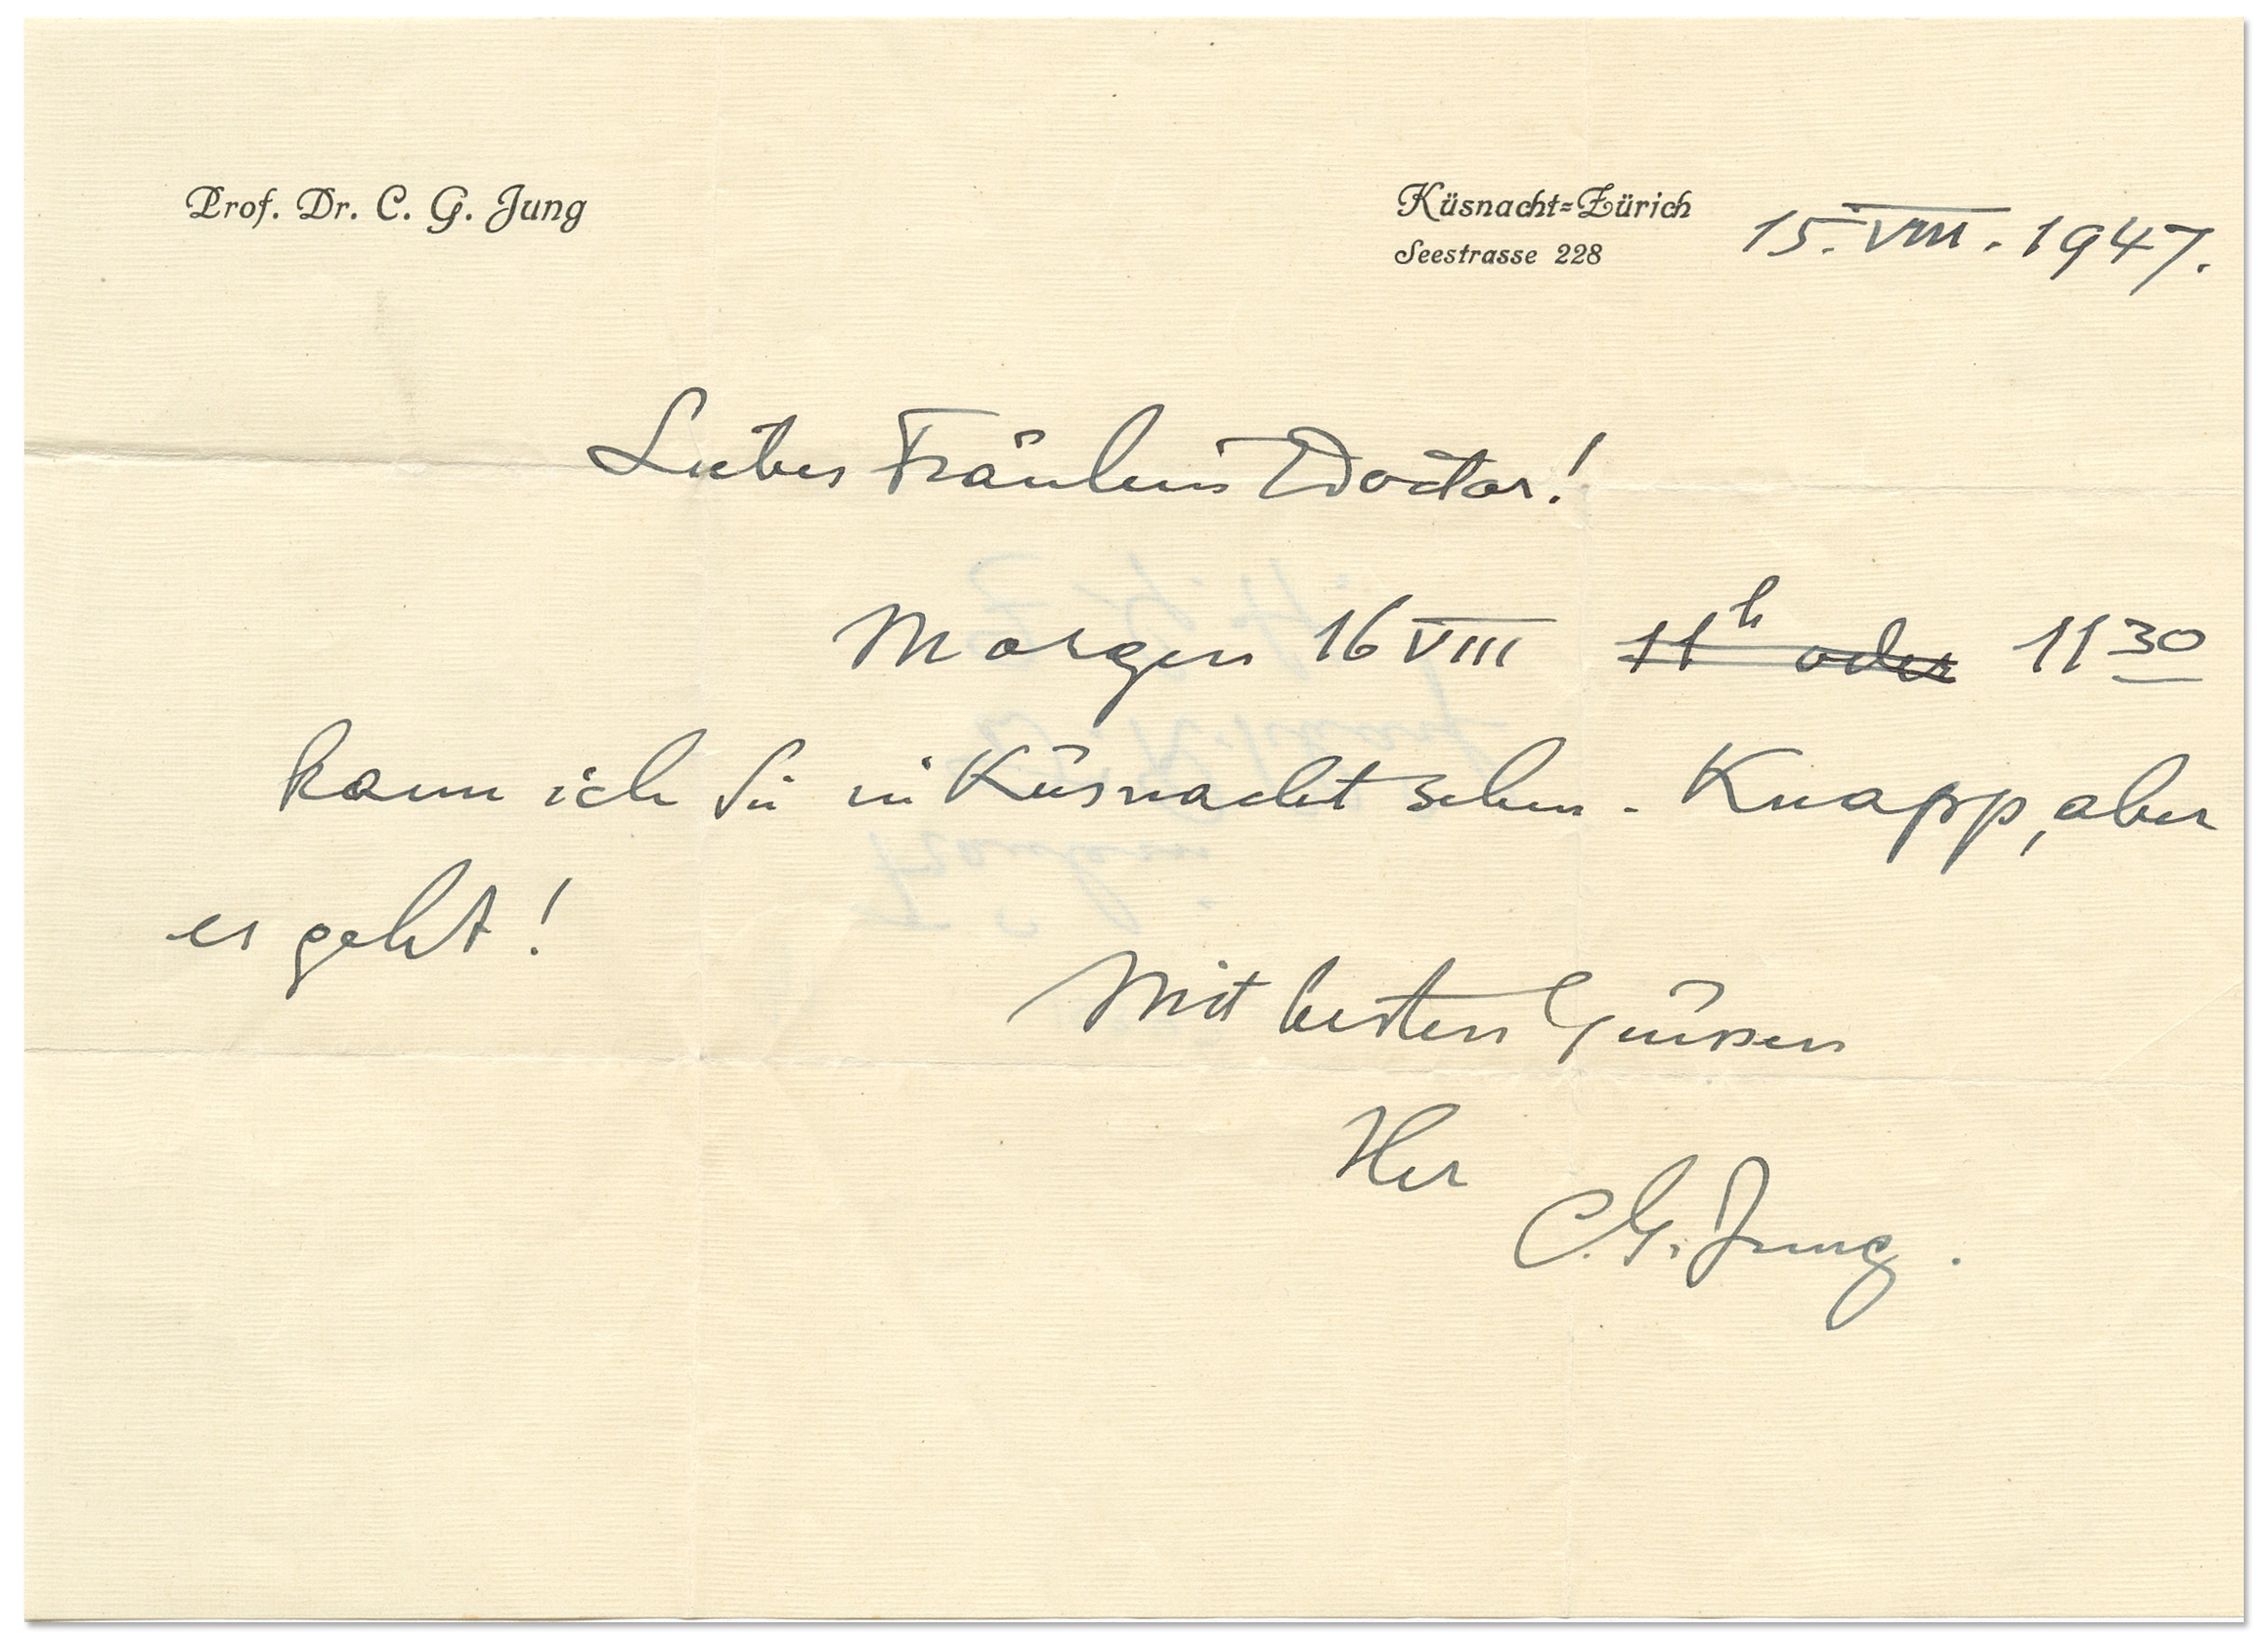 Prof. Dr. C. G. Jung
Küsnacht=Zürich
Seestrasse 228
15. VIII. 1947.
Liebes Fräulein Doctor!
Morgen 16 VIII 11h oder 11 30
kann ich Sie in Küsnacht sehen. Knapp, aber
es geht!
Mit besten Grüssen
Ihr
C. G. Jung.